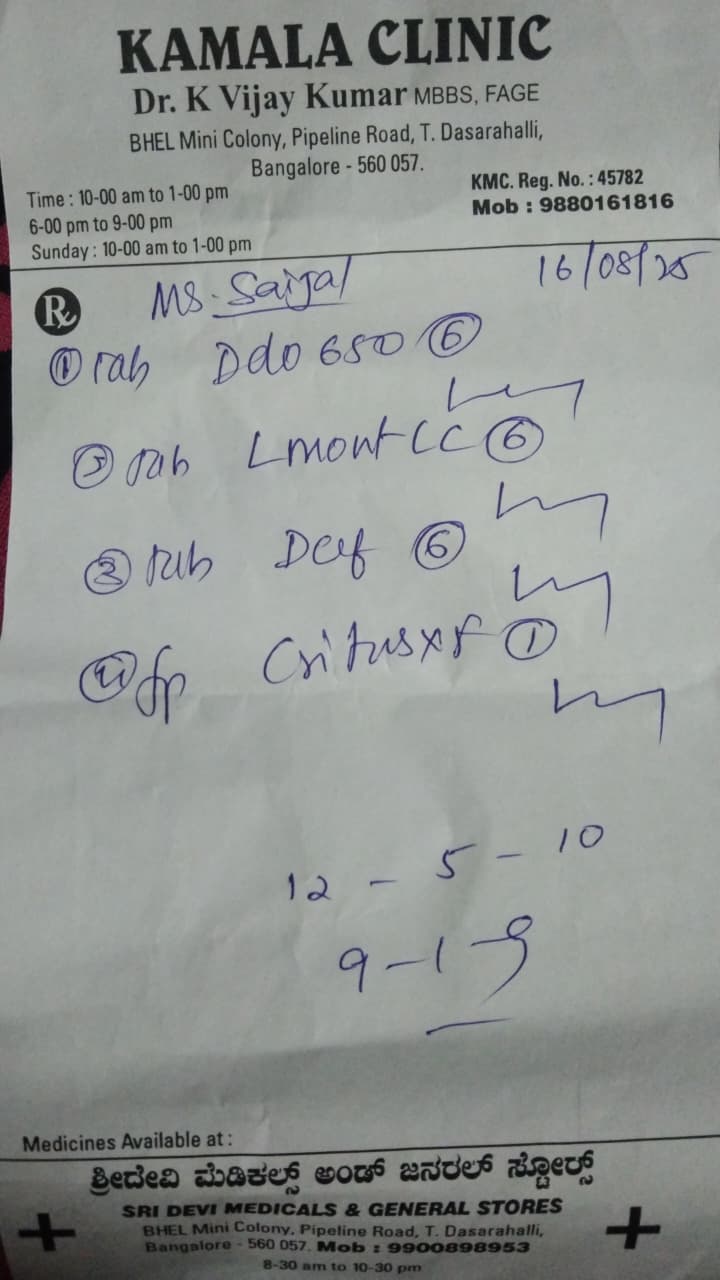 KAMALA CLINIC
Dr. K Vijay Kumar MBBS, FAGE
BHEL Mini Colony, Pipeline Road, T. Dasarahalli,
Bangalore - 560 057.
Time : 10-00 am to 1-00 pm
6-00 pm to 9-00 pm
Sunday : 10-00 am to 1-00 pm
KMC. Reg. No. : 45782
Mob : 9880161816
Rx Ms. Saijal 16/08/25
① Tab Ddo 650 ⑥
Tab Lmont LC ⑥
③ Tab ⑥
④ ①
12 - 5 - 10
9 - 1 - 9
Medicines Available at :
ಶ್ರೀದೇವಿ ಮೆಡಿಕಲ್ಸ್ ಅಂಡ್ ಜನರಲ್ ಸ್ಟೋರ್ಸ್
SRI DEVI MEDICALS & GENERAL STORES
BHEL Mini Colony, Pipeline Road, T. Dasarahalli,
Bangalore - 560 057. Mob : 9900898953
8-30 am to 10-30 pm